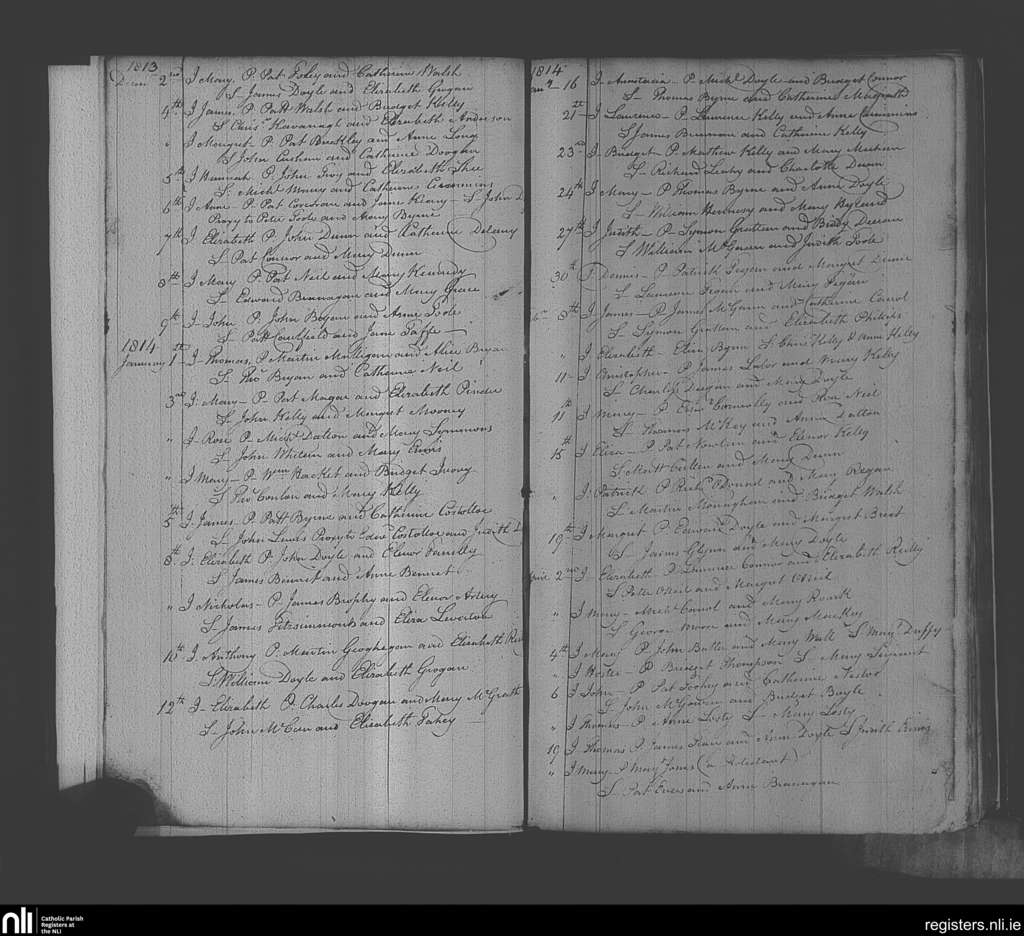 1813
Decem 2nd I Mary. P. Pat Foley and Catherine Walsh
S. James Doyle and Elizabeth Grogan
4th I James. P. Patt Walsh and Bridget Kelly
S. Chrisr Kavanagh and Elizabeth Anderson
" I Margret P. Pat Buckley and Anne Long
S John Cushan and Catherine Dooghan
5th I Hannah P. John Troy and Elizabeth Shee
S. Michl and Catherine Cummins
6th I Anne - P. Pat Corcoran and Jane Kleary - S. John D
Proxy to Peter Toole and Mary Byrne
7th I Elizabeth P. John Dunn and Catherine Delany
S. Pat Connor and Mary Dunn
8th I Mary P. Pat Neil and Mary Kennedy
S. Edward Brannagan and Mary Grace
9th I John P. John Bryan and Anne Toole
S. Patt Caulfield and Jane Taffe
1814
January 1st I Thomas, P. Martin Mulligan and Alice Bryan
S. Thos Bryan and Catherine Neil
3rd I. Mary - P. Pat Magan and Elizabeth Pinder
S. John Kelly and Margret Mooney
" I Rose P. Michl Dalton and Mary Symmons
S. John Whelan and Mary Ennis
" I Mary - P. Wm Hacket and Bridget
S. Thos Conlan and Mary Kelly
5th I. James - P. Patt Byrne and Catherine Costolloe
S. John Lewis Proxy to Edwd Costolloe and Judith D
8th I. Elizabeth P. John Doyle and Elenor Farrelly
S. James Bennet and Anne Bennet
" I Nicholas - P. James Brophy and Elenor
S. James Fitzsimmons and Eliza
10th I. Anthony P. Martin Geoghegan and Elizabeth
S. William Doyle and Elizabeth Grogan
12th I - Elizabeth P. Charles Doogan and Mary McGrath
S. John McCan and Elizabeth Fahey
1814
Jany 16 I. Anastasia - P. Michl Doyle and Bridget Connor
S - Thomas Byrne and Catherine
21st I Laurence - P. Laurence Kelly and Anne Cummins
S. James Brennan and Catherine Kelly
23rd I - Bridget - P. Matthew Kelly and Mary
S. Richard Leahy and Charlotte Dunn
24th I Mary - P. Thomas Byrne and Anne Doyle
S - William Hennessy and Mary
27th I Judith - P. Symon Grattan and Biddy
S William McGwen and Judith Toole
30th I. Dennis - P. Patrick Fegan and Margret Dunn
S. Laurence and Mary Fegan
8th I James - P. James McGwen and Catherine Carrol
S - Symon Grattan and Elizabeth
" I Elizabeth - Eliza Byrn S. Chrisr Kelly & Anne Kelly
11 - I Christopher - P. James Lalor and Mary Kelly
S - Charles Deegan and Mary Doyle
11th I Mary - P. Connolly and Rose Neil
S. Thomas McKey and Anne Dalton
15th I Eliza - P. Pat Nowlan and Elenor Kelly
S. Matt and Mary Dunn
" I. Patrick P. Richd ODonnel and Mary Regan
S. Martin Monaghan and Bridget Walsh
19th I Margret P. Edward Doyle and Margret
S. James Glynn and Mary Doyle
2nd I Elizabeth P. Connor and Elizabeth Reilly
S. Peter ONeil and Margret ONeil
" I Mary - Michl Carrol and Mary
S. George Moore and Mary
4th I Mary P. John Butler and Mary Wall S. Mary Duffy
" I Hester - P Bridget Thompson S - Mary
6 I John - P Pat and Catherine Nestor
S. John McGowen and Bridget Boyle
" I Thomas - P. Anne S - Mary
19 I Thomas P. James and Anne Doyle S Judith
" I Mary - P Mary Jones (a Protestant)
S - Pat and Anne Brannagan
nli
Catholic Parish
Registers at
the NLI
registers.nli.ie